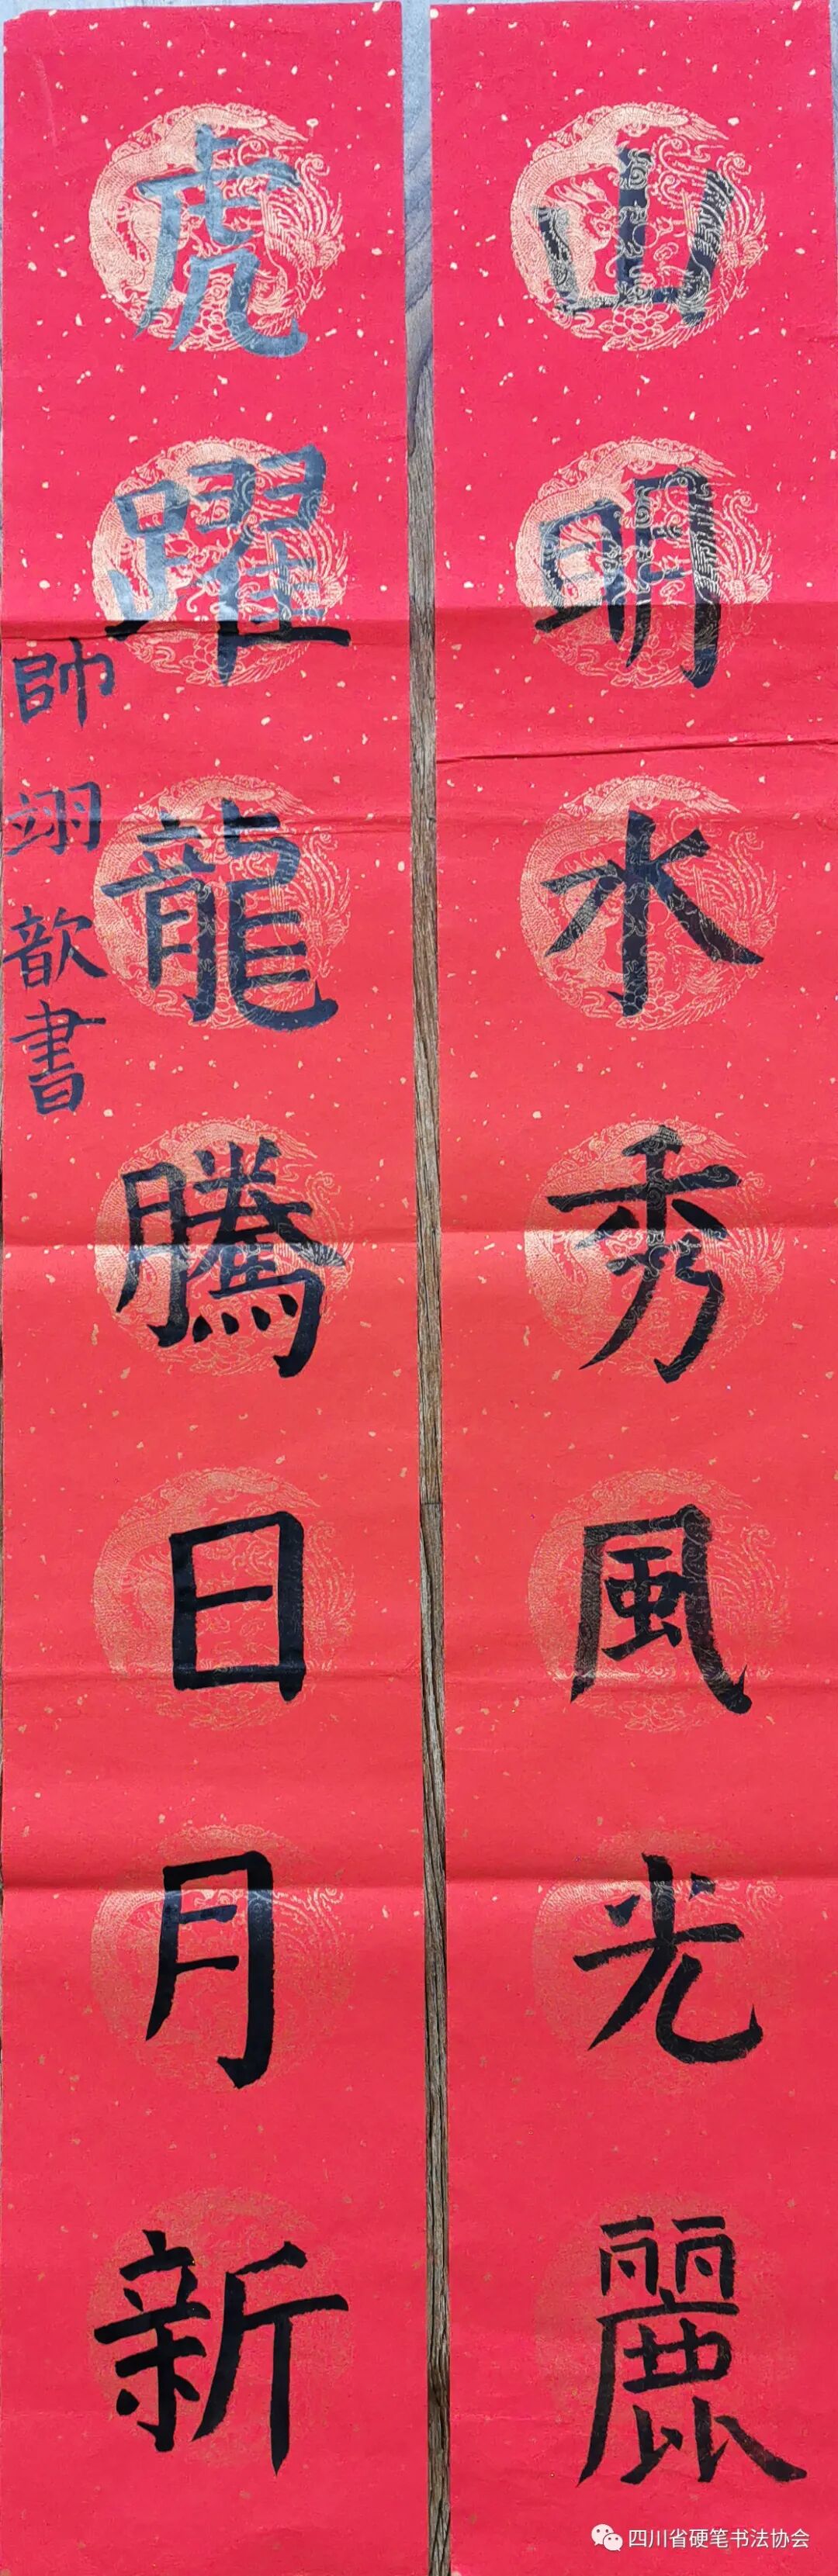 山明水秀風光麗
虎躍龍騰日月新
帥翊歆書
四川省硬笔书法协会